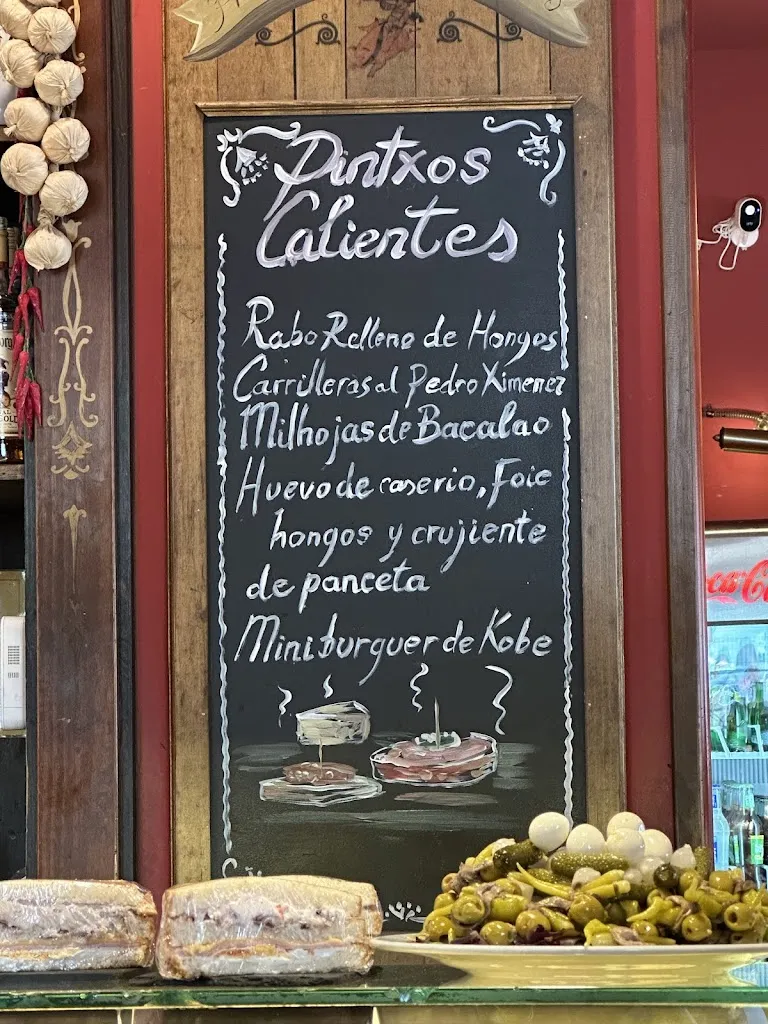 Pintxos
Calientes
Rabo Relleno de Hongos
Carrilleras al Pedro Ximenez
Milhojas de Bacalao
Huevo de caserio, Foie
hongos y crujiente
de panceta
Miniburguer de Kobe